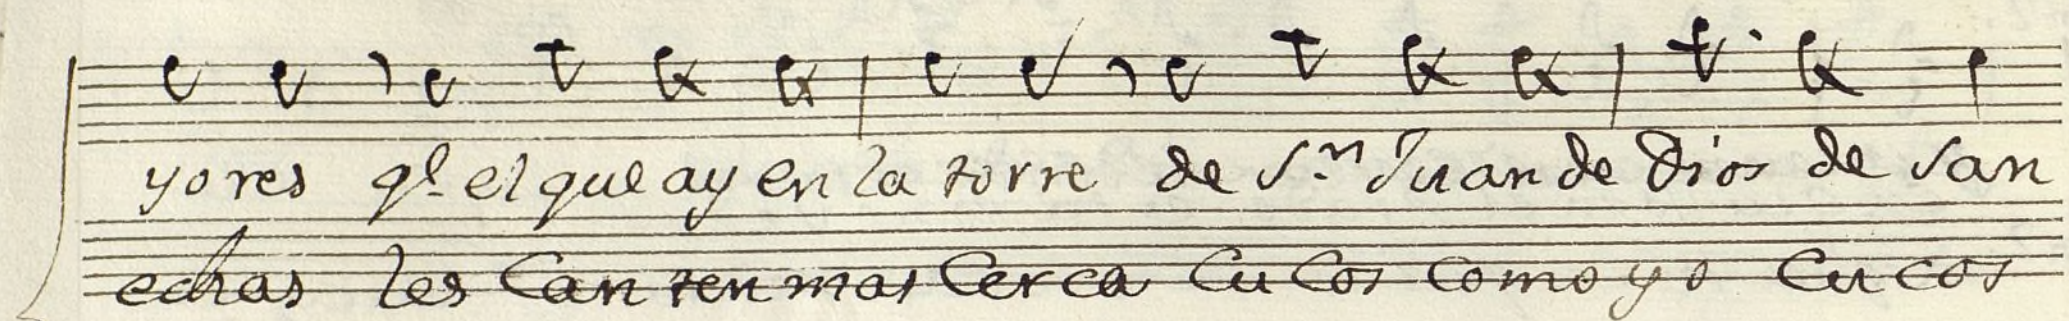 yores ql. el que ay en la torre de Sn. Juan de Dios de san
echas les Canten mas Cerca Cucos Como yo Cucos